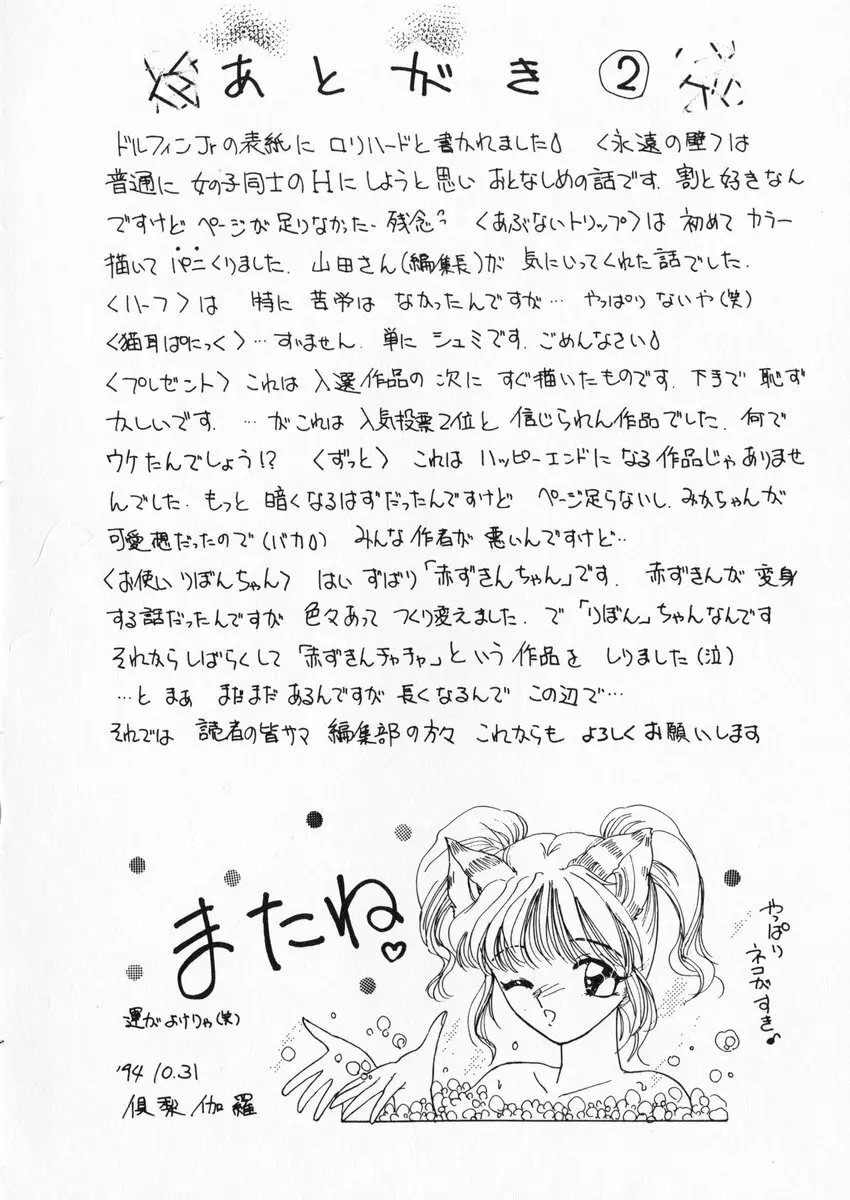 あとがき②
ドルフィンJrの表紙に ロリハードと書かれました♪ 〈永遠の壁〉は
普通に 女の子同士のHにしようと思い おとなしめの話です. 割と好きなん
ですけど ページが足りなかった. 残念? 〈あぶないトリップ〉は 初めて カラー
描いて パニくりました. 山田さん(編集長)が 気にいってくれた話でした.
〈ハーフ〉は 特に 苦労は なかったんですが… やっぱり ないや(笑)
〈猫耳ぱにっく〉…すいません. 単に シュミです. ごめんなさい♪
〈プレゼント〉 これは 入選作品の 次に すぐ描いたものです. 下手で 恥ず
かしいです. …がこれは 人気投票2位と 信じられん作品でした. 何で
ウケたんでしょう!? 〈ずっと〉 これは ハッピーエンドに なる作品じゃ ありませ
んでした. もっと 暗くなるはずだったんですけど ページ足らないし. みかちゃんが
可愛想だったので(バカ♪) みんな作者が 悪いんですけど…
〈お使いりぼんちゃん〉 はい ずばり「赤ずきんちゃん」です. 赤ずきんが 変身
する話だったんですが 色々あって つくり変えました. で「りぼん」ちゃんなんです
それからしばらくして「赤ずきんチャチャ」という 作品を しりました(泣)
…と まぁ まだまだ あるんですが 長くなるんで この辺で…
それでは 読者の皆サマ 編集部の方々 これからも よろしくお願いします
またね♡
運がよけりゃ(笑)
'94 10.31
倶梨伽羅
やっぱり
ネコがすき♪